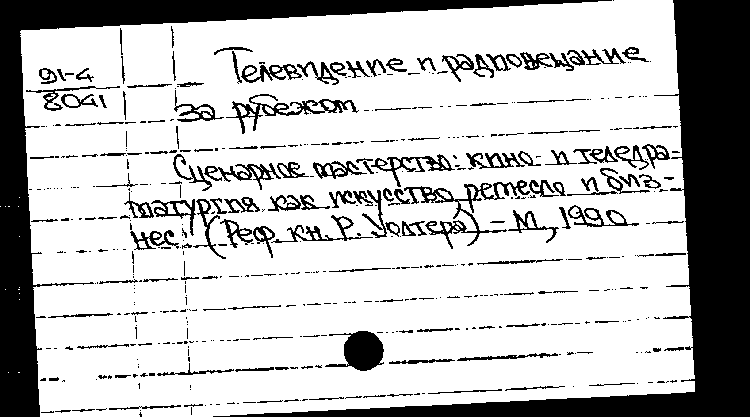 91-4
8041
Телевидение и радиовещание
за рубежом
Сценарное мастерство: кино- и теледра-
матургия как искусство, ремесло и биз-
нес. (Реф. кн. Р. Уолтера) - М., 1990